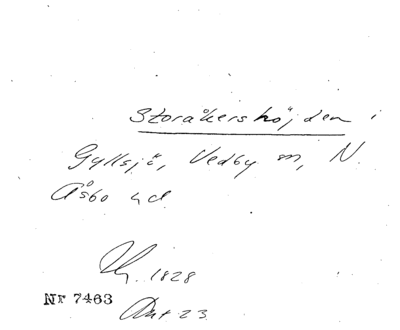 Storåkershöjden i
Gyllsjö, Vedby sn, N.
Åsbo hd.
1828
Nr 7463
Akt 23.